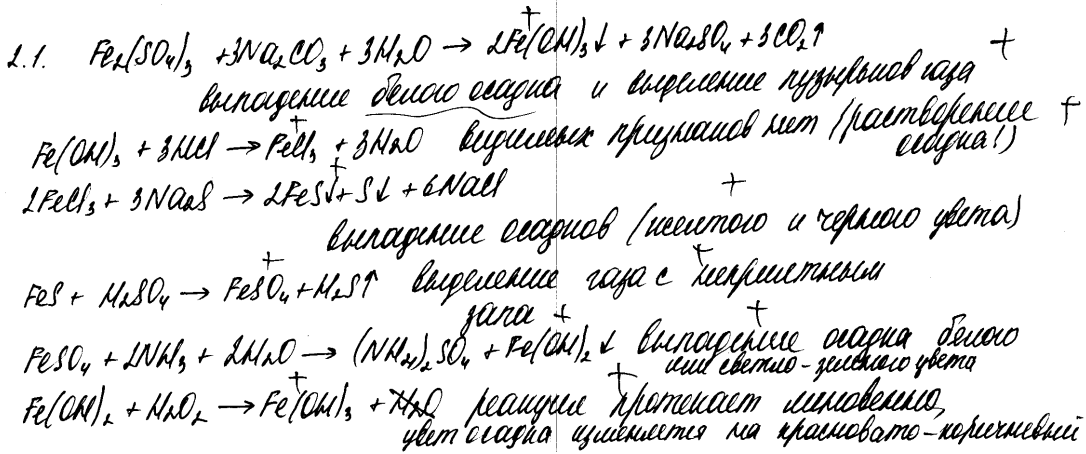 2.1. Fe₂(SO₄)₃ + 3Na₂CO₃ + 3H₂O → 2Fe(OH)₃↓ + 3Na₂SO₄ + 3CO₂↑ +
выпадение белого осадка и выделение пузырьков газа +
Fe(OH)₃ + 3HCl → FeCl₃ + 3H₂O видимых признаков нет (растворение осадка!) +
2FeCl₃ + 3Na₂S → 2FeS↓ + S↓ + 6NaCl +
выпадение осадков (желтого и черного цвета) +
FeS + H₂SO₄ → FeSO₄ + H₂S↑ выделение газа с неприятным
запа +
FeSO₄ + 2NH₃ + 2H₂O → (NH₄)₂SO₄ + Fe(OH)₂↓ выпадение осадка белого
или светло-зеленого цвета
Fe(OH)₂ + H₂O₂ → Fe(OH)₃ + H₂O реакция протекает мгновенно,
цвет осадка изменяется на красновато-коричневый